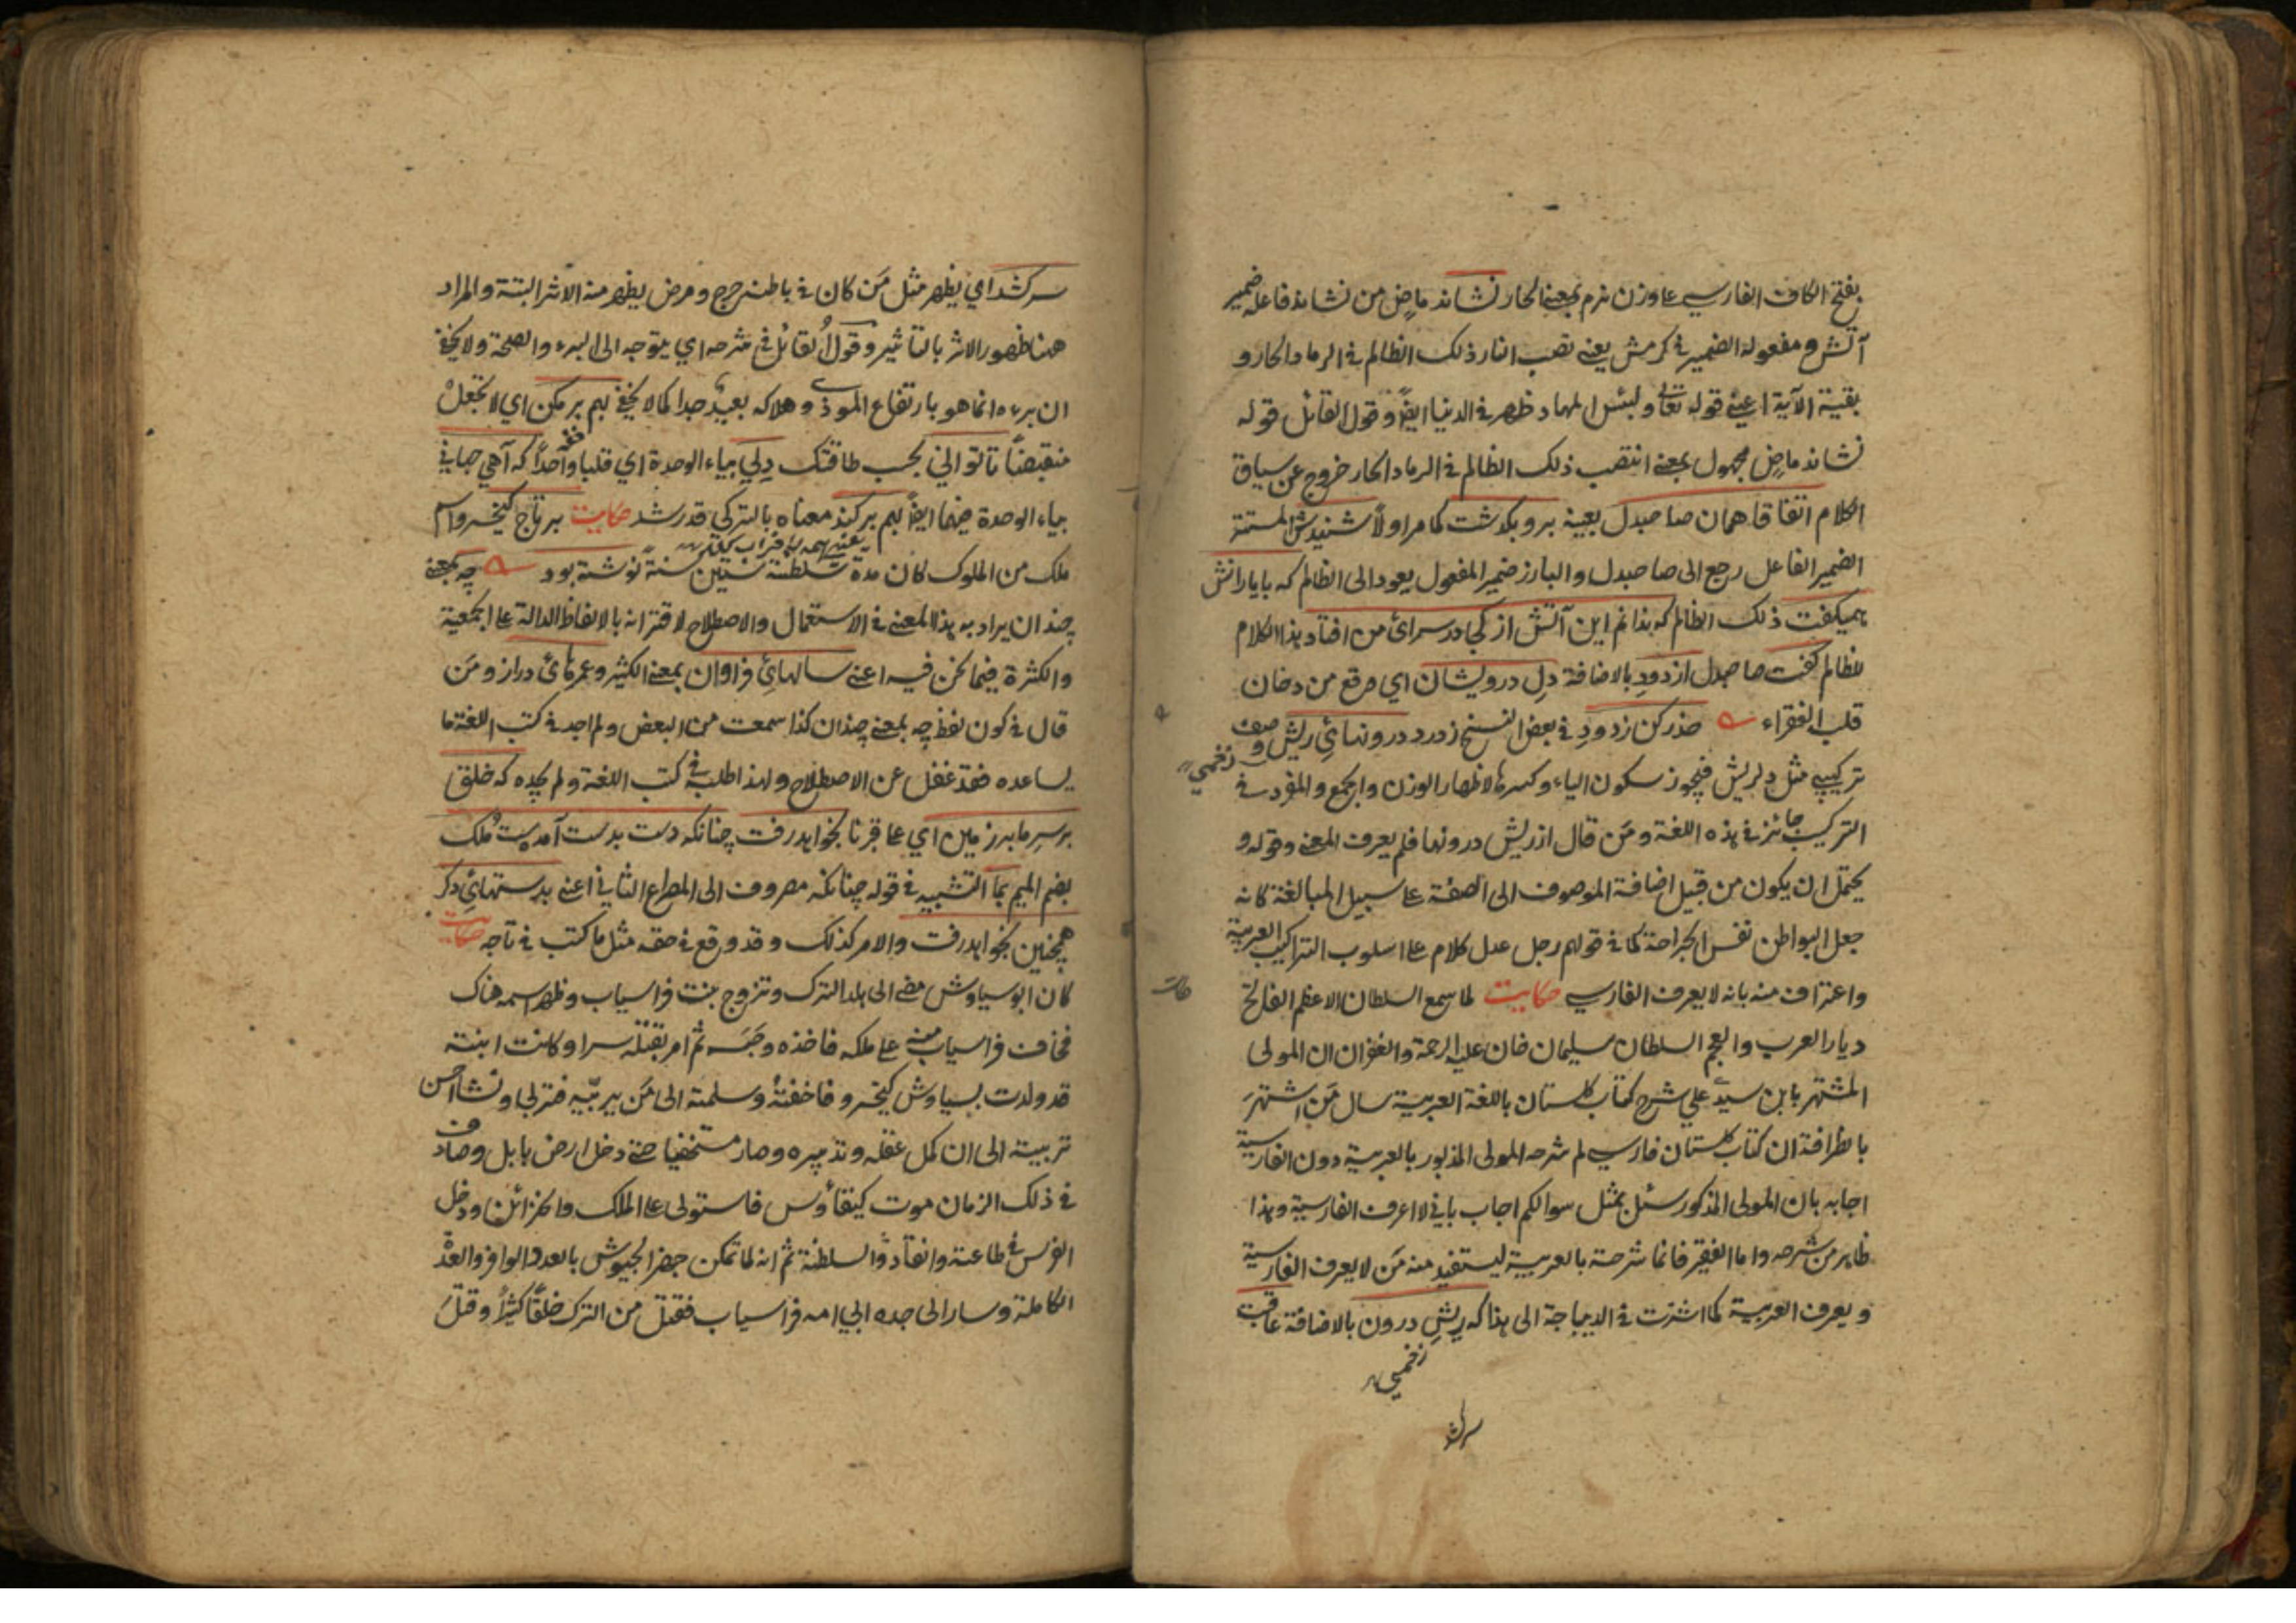 بفتح الكاف الفارسي على وزن نرم بمعنى الحار نشاند ماض من نشاند فاعله ضمير
آتش ومفعوله الضمير في كرمش يعني نصب النار ذلك الظالم في الرماد الحار و
بقية الآية اعني قوله تعالى ولبئس المهاد ظهر في الدنيا ايضا وقول القائل قوله
نشاند ماض مجهول بمعنى انتصب ذلك الظالم في الرماد الحار خروج عن سياق
الكلام اتفاقا همان صاحبدل بعينه برو بكذشت كما مر اولا شنيدش المستتر
الضمير الفاعل رجع الى صاحبدل والبارز ضمير المفعول يعود الى الظالم كه با يارانش
هميكفت ذلك الظالم كه ندانم اين آتش از كجا در سراى من افتاد هذا الكلام
للظالم كفت صاحبدل از دود بالاضافة دل درويشان اي وقع من دخان
قلب الفقراء حذر كن ز دود في بعض النسخ ز درد درونهاي ريش وصف
زخمي
تركيبي مثل دلريش فيجوز سكون الياء وكسرها لاظهار الوزن والجمع والمفرد في
التركيب جائز في هذه اللغة ومن قال از ريش درونها فلم يعرف المعنى وقوله و
يحتمل ان يكون من قبيل اضافة الموصوف الى الصفة على سبيل المبالغة كانه
جعل البواطن نفس الجراحة كما في قولهم رجل عدل كلام على اسلوب التراكيب العربية
واعتراف منه بانه لا يعرف الفارسي حكايت لما سمع السلطان الاعظم الفاتح
ديار العرب والعجم السلطان سليمان خان عليه الرحمة والغفران ان المولى
المشتهر بابن سيد علي شرح كتاب كلستان باللغة العربية سال من اشتهر
بالظرافة ان كتاب كلستان فارسي لم شرحه المولى المذبور بالعربية دون الفارسية
اجابه بان المولى المذكور سئل بمثل سوالكم اجاب باني لا اعرف الفارسية وهذا
ظاهر من شرحه واما الفقير فانما شرحته بالعربية ليستفيد منه من لا يعرف الفارسية
ويعرف العربية كما اشرت في الديباجة الى هذا كه ريش درون بالاضافة عاقبت
زخمي
سر كشد
سر كشد اي يظهر مثل من كان في باطنه جرح ومرض يظهر منه الاثر البتة والمراد
هنا ظهور الاثر بالتاثير وقول القائل في شرحه اي يتوجه الى البرء والصحة ولا يخفى
ان برءه انما هو بارتفاع الموذي وهلاكه بعيد جدا كما لا يخفى بهم بر مكن اي لا تجعل
منقبضا تا تواني بحسب طاقتك دلي بياء الوحدة اي قلبا واحدا كه آهي جهاني
بياء الوحدة فيهما ايضا بهم بر كند معناه بالتركي قدر شد حكايت بر تاج كيخسرو اسم
ملك من الملوك كان مدة سلطنته ستين سنة نوشته بود چه بمعنى
چندان يراد به هذا المعنى في الاستعمال والاصطلاح لاقترانه بالالفاظ الدالة على الجمعية
والكثرة فيما نحن فيه اعني سالهاي فراوان بمعنى الكثير وعمرهاى دراز ومن
قال في كون لفظ چه بمعنى چندان كذا سمعت من البعض ولم اجد في كتب اللغة ما
يساعده فقد غفل عن الاصطلاح ولهذا طلبه في كتب اللغة ولم يجده كه خلق
بر سر ما بر زمين اي على قبرنا بخواهد رفت چنانكه دست بدست آمدست ملك
بضم الميم بما التشبيه في قوله چنانكه مصروف الى المصراع الثاني اعني بدستهاي دكر
همچنين بخواهد رفت والامر كذلك وقد وقع في حقه مثل ما كتب في تاجه حكايت
كان ابو سياوش مضى الى بلد الترك وتزوج بنت فراسياب وظهر اسمه هناك
فخاف فراسياب منه على ملكه فاخذه وحبسه ثم امر بقتله سرا وكانت ابنته
قد ولدت بسياوش كيخسرو فاخفته وسلمته الى من يربيه فتربى ونشا احسن
تربية الى ان كمل عقله وتدبيره وصار مستخفيا حتى دخل ارض بابل وصادف
في ذلك الزمان موت كيقاوس فاستولى على الملك والخزائن ودخل
الفرس في طاعته وانقادوا لسلطنته ثم انه لما تمكن جهز الجيوش بالعدد الوافر والعدة
الكاملة وسار الى جده ابي امه فراسياب فقتل من الترك خلقا كثيرا وقتل